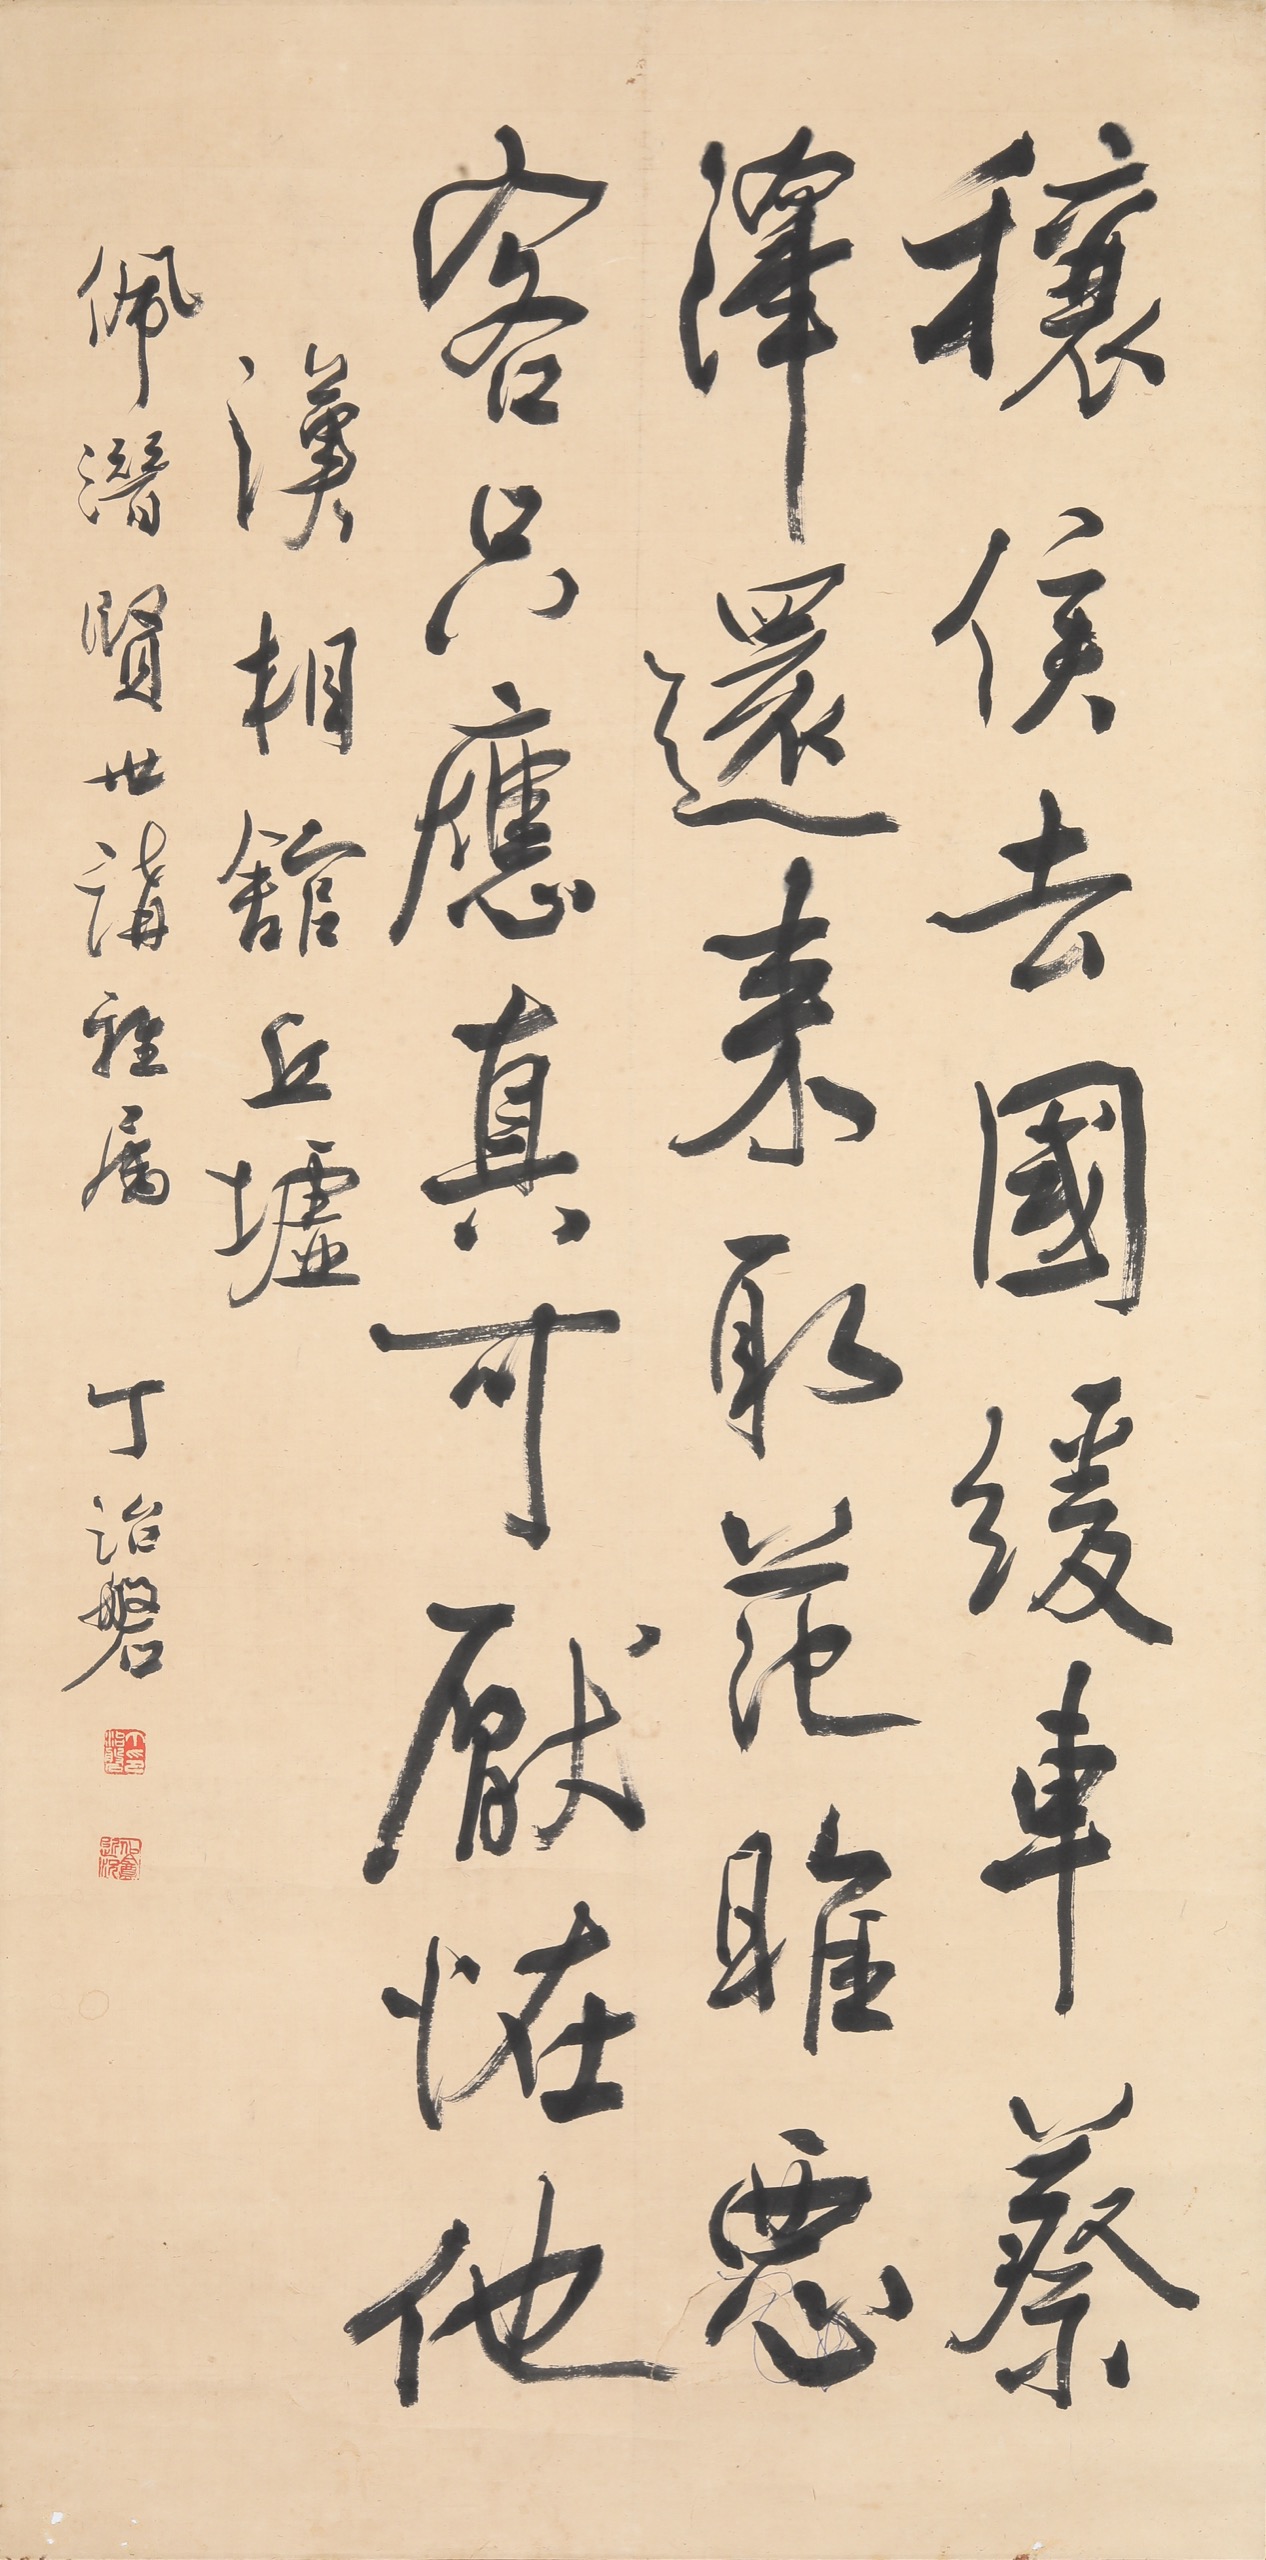 穰侯去國緩車蔡
澤還来取范睢惡
客只應真可厭恠他
漢相館丘墟
佩潛賢世講雅属 丁治磐